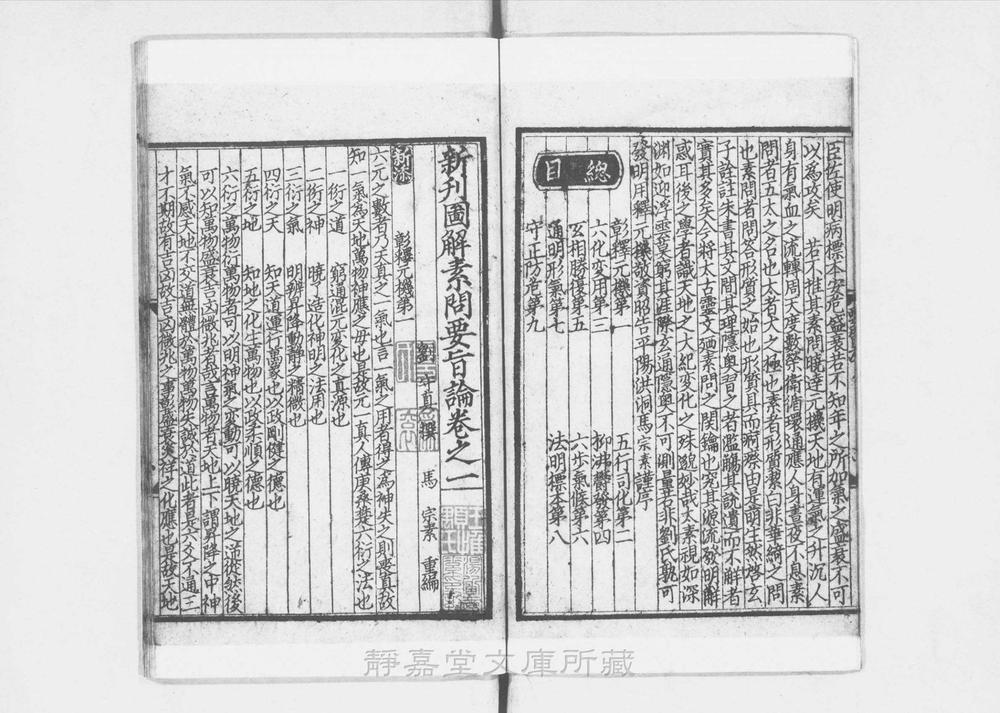 臣佐使明病標本安危盛衰若不知年之所加氣之盛衰不可
以為攻矣　若不推其素問曉達元機天地有運氣之升沉人
身有氣血之流轉周天度數榮衛循環通應人身晝夜不息素
問者五太之名也太者大之極也素者形質潔白非華綺之問
也素問者問荅形質之始也形質具而痾瘵由是萌生然啓玄
子詮註朱書其文間其理隱奧習之者濫觴其說遺而不解者
實其多矣今將太古靈文廼素問之關鑰也究其源流發明解
惑耳後之學者識天地之大紀變化之殊䚷妙哉太素視如深
淵如迎浮雲莫窮其涯際玄通隱奥不可測量若非劉氏孰可
發明用釋玄元機敬資昭告平陽洪洞馬宗素謹序
總目
彰釋元機第一　五行司化第二
六化變用第三　抑沸欝發第四
玄相勝復第五　六步氣候第六
通明形氣第七　法明標本第八
守正防危第九
新刊圖解素問要旨論卷之一
劉守真撰　馬宗素重編
新添　彰釋元機第一
六元之數者乃天真之一氣也言一氣之用者得之為神失之則喪真故
知一氣為天地萬物神應之母也是故元一真人傳庚桑爕六衍之法也
一衍之道　窮通混元變化之真源也
二衍之神　曉了造化神明之法用也
三衍之氣　明辨昇降動靜之精微也
四衍之天　知天道運行萬象也以政剛健之德也
五衍之地　知地之化生萬物也以政柔順之德也
六衍之萬物衍萬物者可以明神氣之變動可以曉天地之溢漎然後
可以知萬物盛衰吉凶微兆者哉言萬物者天地上下謂昇降之中神
氣不感天地不交道無體於萬物萬物失誠於道此者是六爻不通三
才不期故有吉凶故吉凶微兆之事萬盛衰災祥之化應也是故天地
靜嘉堂文庫所藏